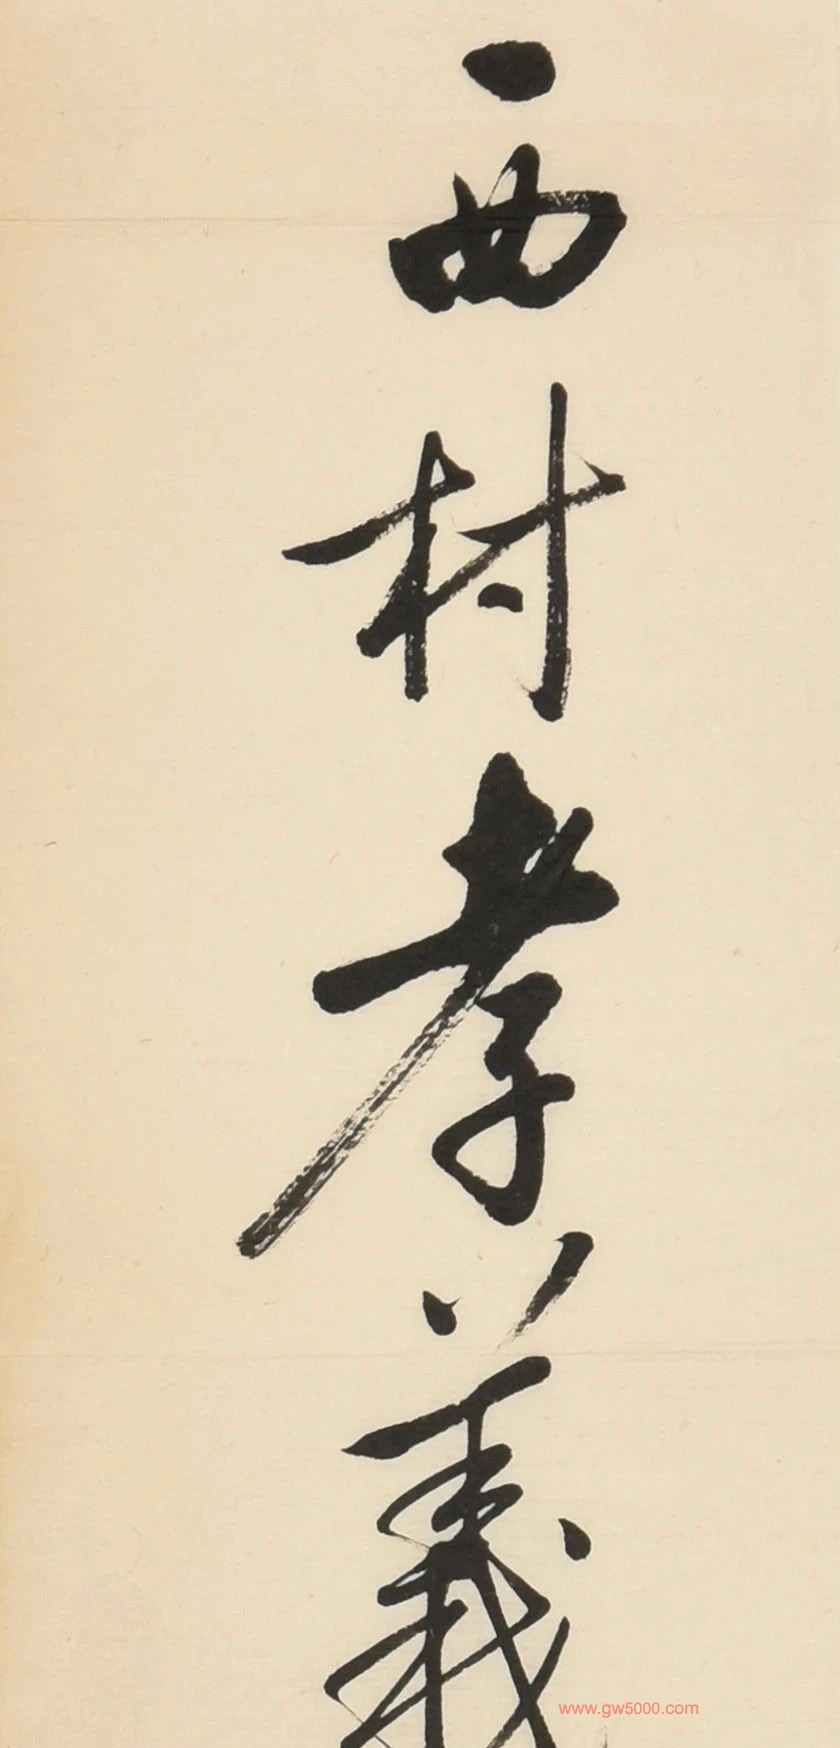 西村孝義
www.gw5000.com